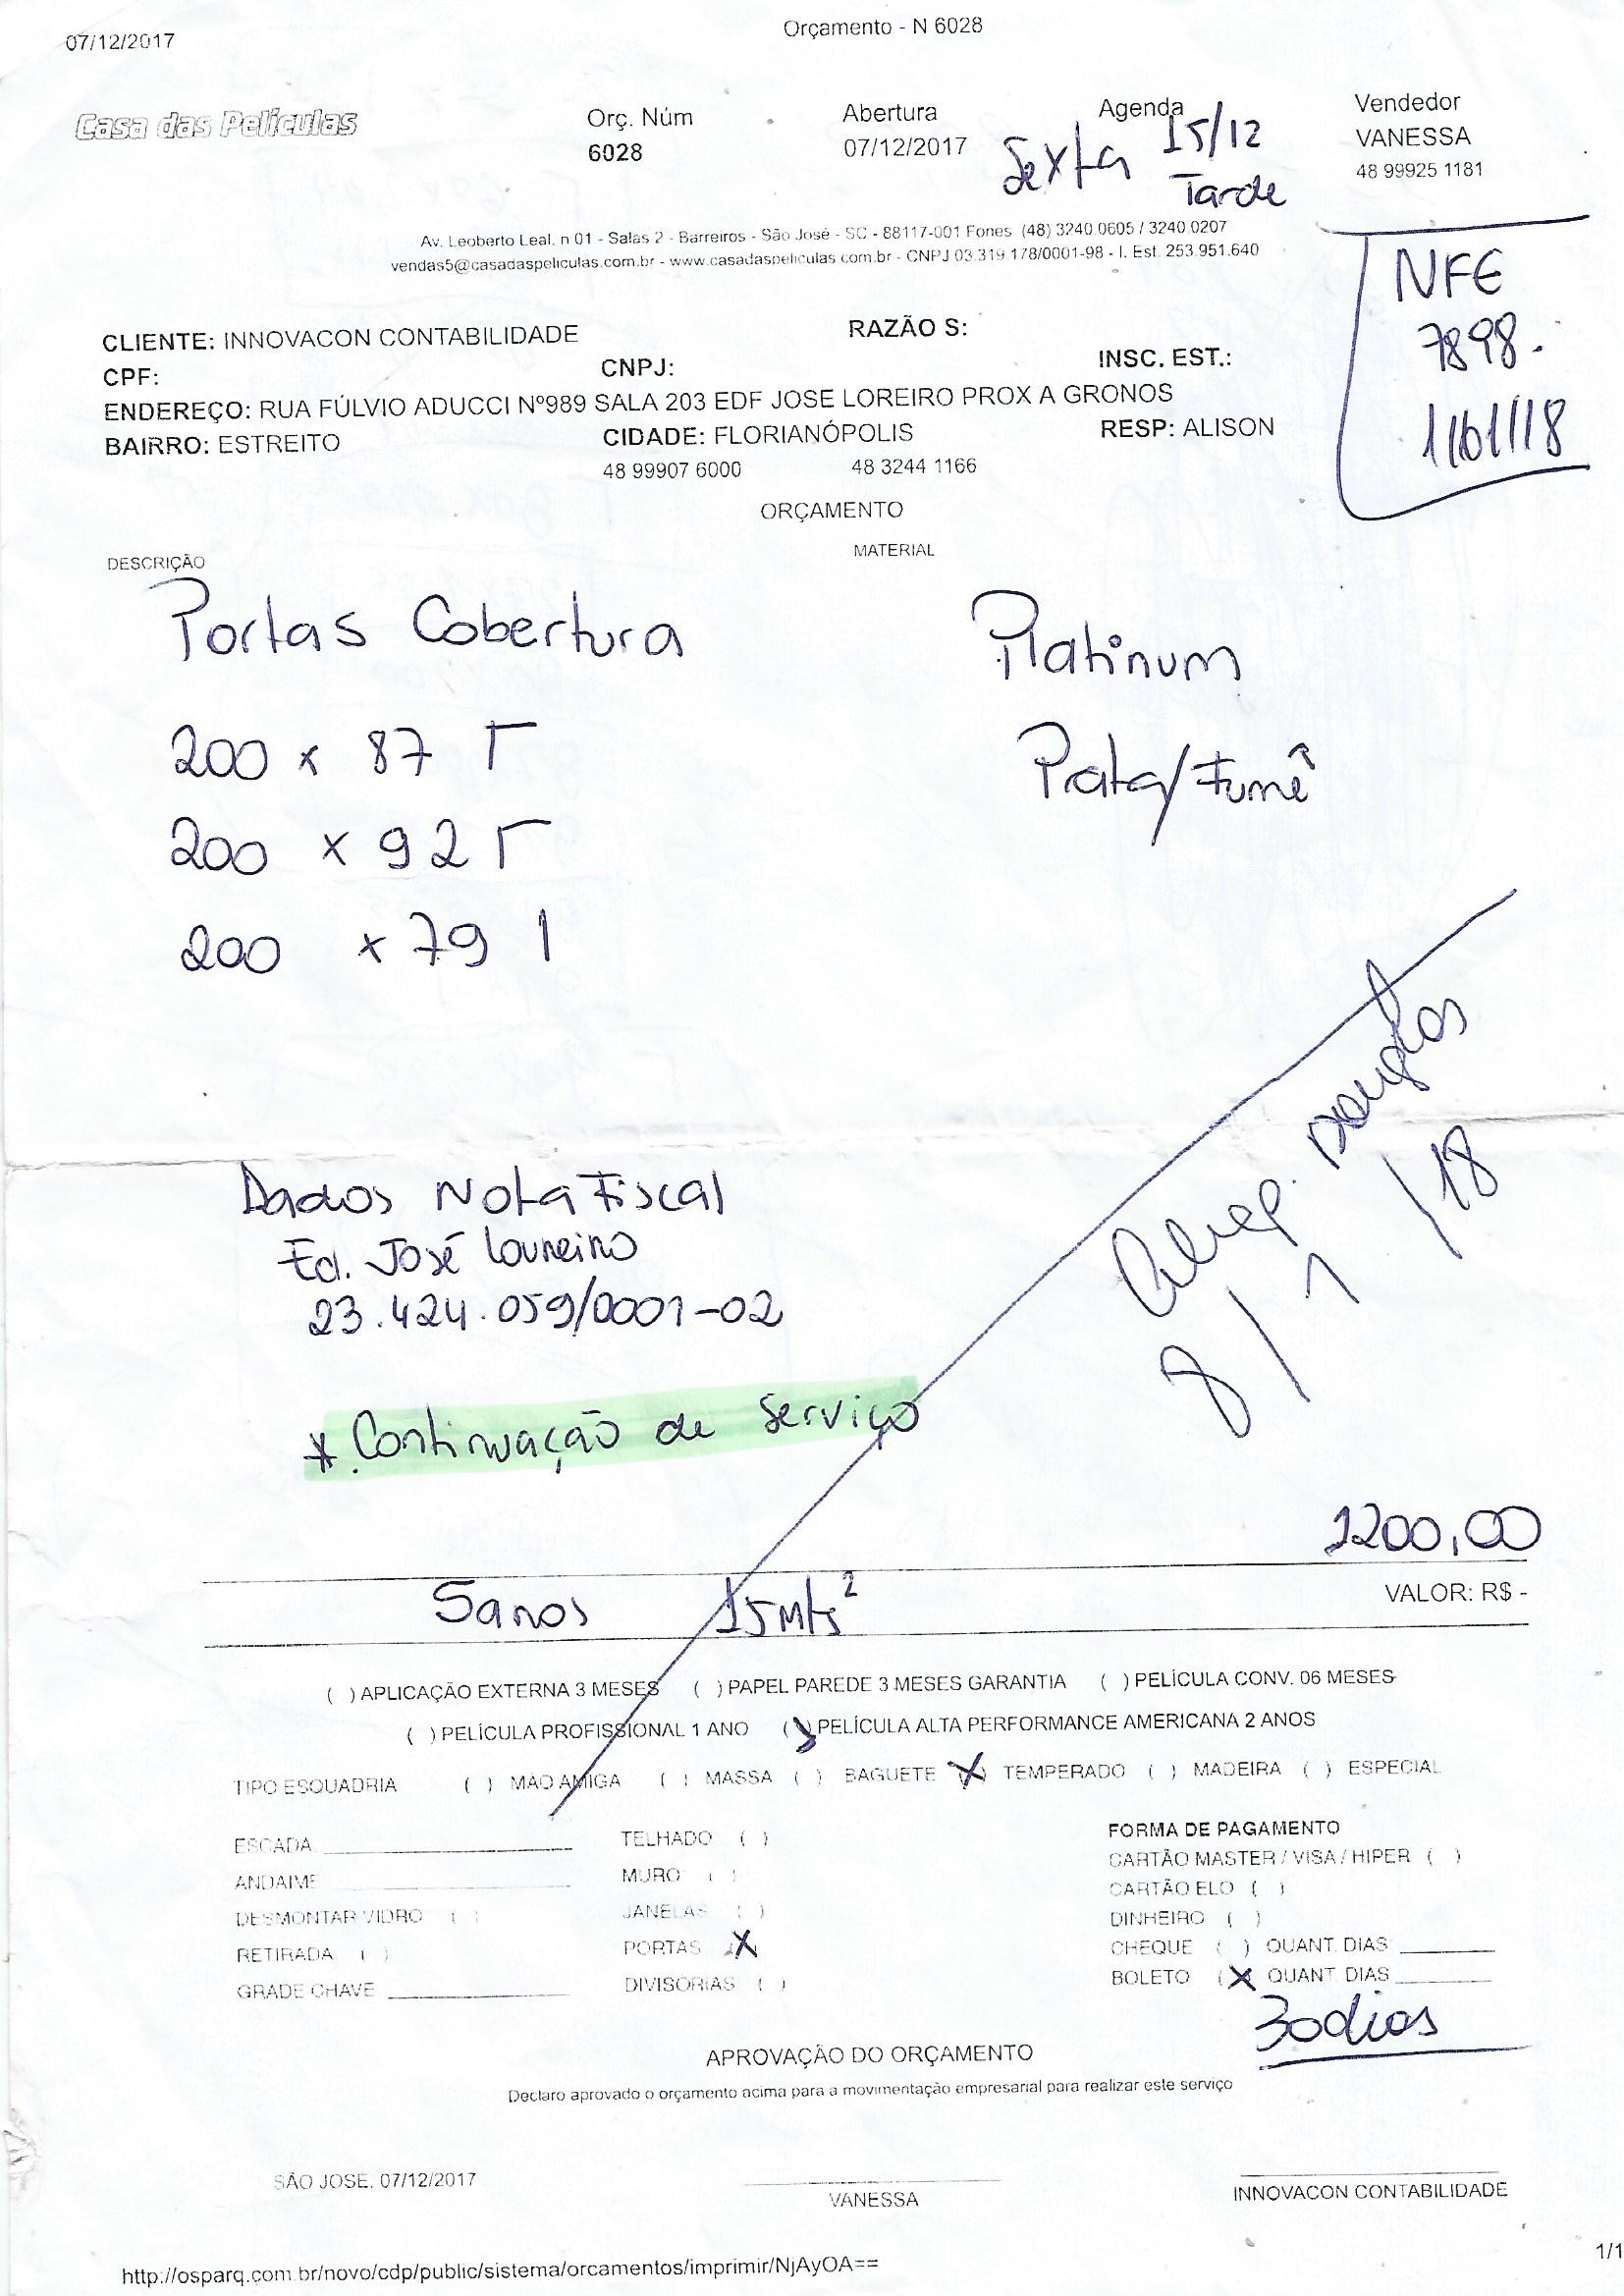 07/12/2017
Orçamento - N 6028
Casa das Películas
Orç. Núm
6028
Abertura
07/12/2017
Agenda
Sexta 15/12
Tarde
Vendedor
VANESSA
48 99925 1181
Av. Leoberto Leal, n 01 - Salas 2 - Barreiros - São José - SC - 88117-001 Fones (48) 3240.0605 / 3240.0207
vendas5@casadaspeliculas.com.br - www.casadaspeliculas.com.br - CNPJ 03.319.178/0001-98 - I. Est. 253.951.640
NFE
7898.
11/01/18
CLIENTE: INNOVACON CONTABILIDADE RAZÃO S:
CPF: CNPJ: INSC. EST.:
ENDEREÇO: RUA FÚLVIO ADUCCI Nº989 SALA 203 EDF JOSE LOREIRO PROX A GRONOS
BAIRRO: ESTREITO CIDADE: FLORIANÓPOLIS RESP: ALISON
48 99907 6000 48 3244 1166
ORÇAMENTO
DESCRIÇÃO MATERIAL
Portas Cobertura Platinum
200 x 87 Prata/Fumê
200 x 92
200 x 79
Douglas
8/1/18
Dados Nota Fiscal
Ed. José Loureiro
23.424.059/0001-02
* Continuação de Serviço
1200,00
VALOR: R$ -
5anos 15Mts²
( ) APLICAÇÃO EXTERNA 3 MESES ( ) PAPEL PAREDE 3 MESES GARANTIA ( ) PELÍCULA CONV. 06 MESES
( ) PELÍCULA PROFISSIONAL 1 ANO (x) PELÍCULA ALTA PERFORMANCE AMERICANA 2 ANOS
TIPO ESQUADRIA ( ) MAO AMIGA ( ) MASSA ( ) BAGUETE (X) TEMPERADO ( ) MADEIRA ( ) ESPECIAL
ESCADA
ANDAIME
DESMONTAR VIDRO ( )
RETIRADA ( )
GRADE CHAVE
TELHADO ( )
MURO ( )
JANELAS ( )
PORTAS (X)
DIVISORIAS ( )
FORMA DE PAGAMENTO
CARTÃO MASTER / VISA / HIPER ( )
CARTÃO ELO ( )
DINHEIRO ( )
CHEQUE ( ) QUANT. DIAS
BOLETO (X) QUANT. DIAS
30dias
APROVAÇÃO DO ORÇAMENTO
Declaro aprovado o orçamento acima para a movimentação empresarial para realizar este serviço
SÃO JOSE, 07/12/2017
VANESSA
INNOVACON CONTABILIDADE
http://osparq.com.br/novo/cdp/public/sistema/orcamentos/imprimir/NjAyOA==
1/1